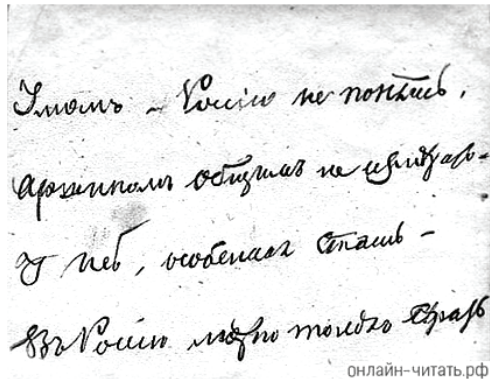 Умомъ – Россію не понять,
Аршиномъ общимъ не измѣрить –
У ней, особенная стать –
Въ Россію можно только вѣрить
онлайн-читать.рф